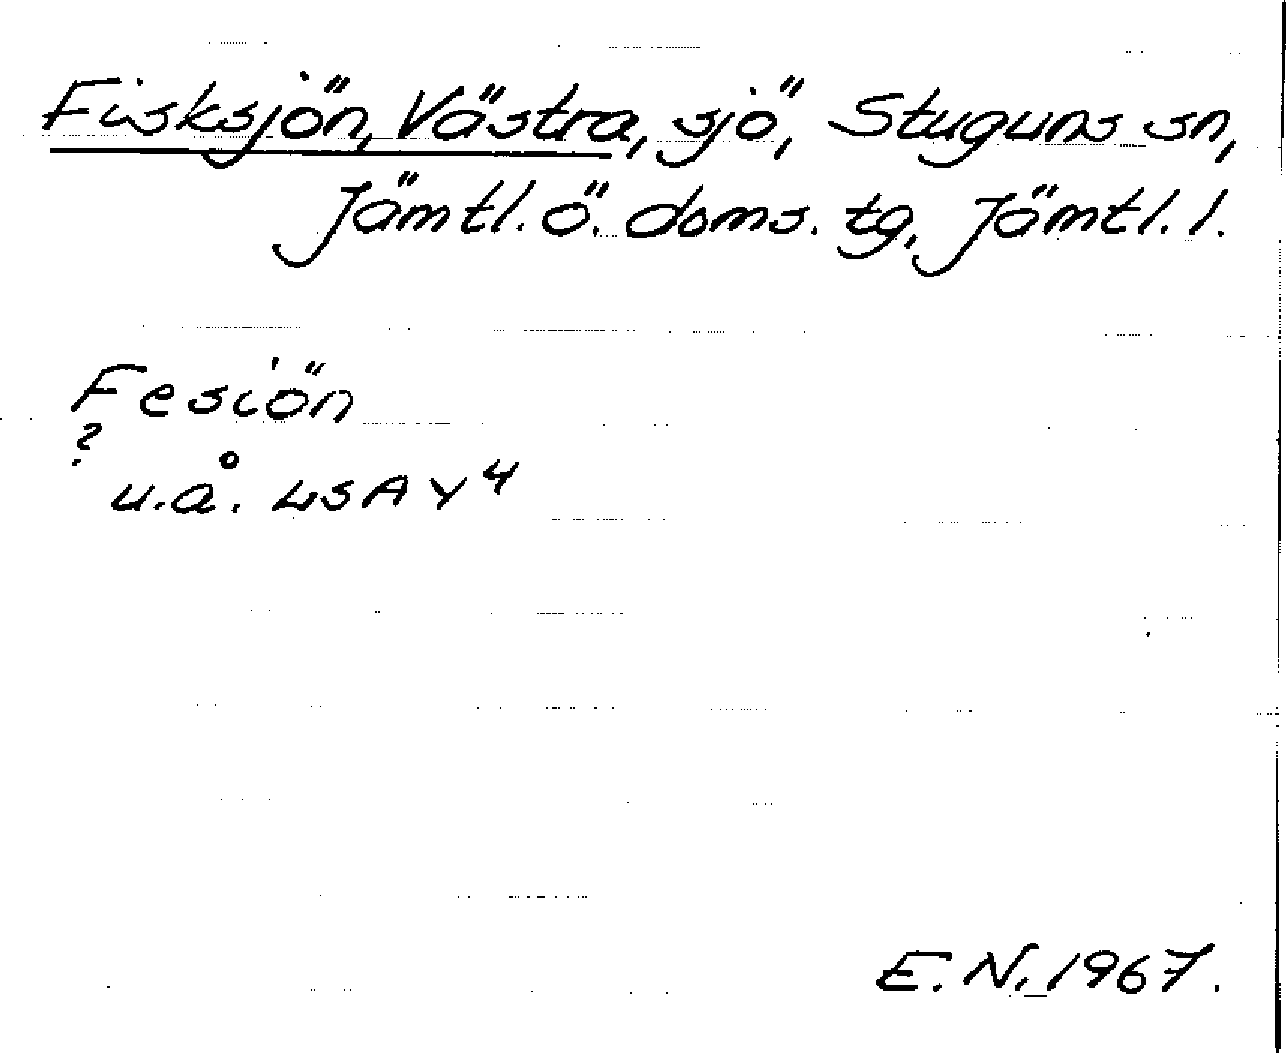 Fisksjön, Västra, sjö, Stuguns sn,
Jämtl. ö. doms. tg, Jämtl. l.
Fesiön
?
u.å. LSA Y4
E.N. 1967.